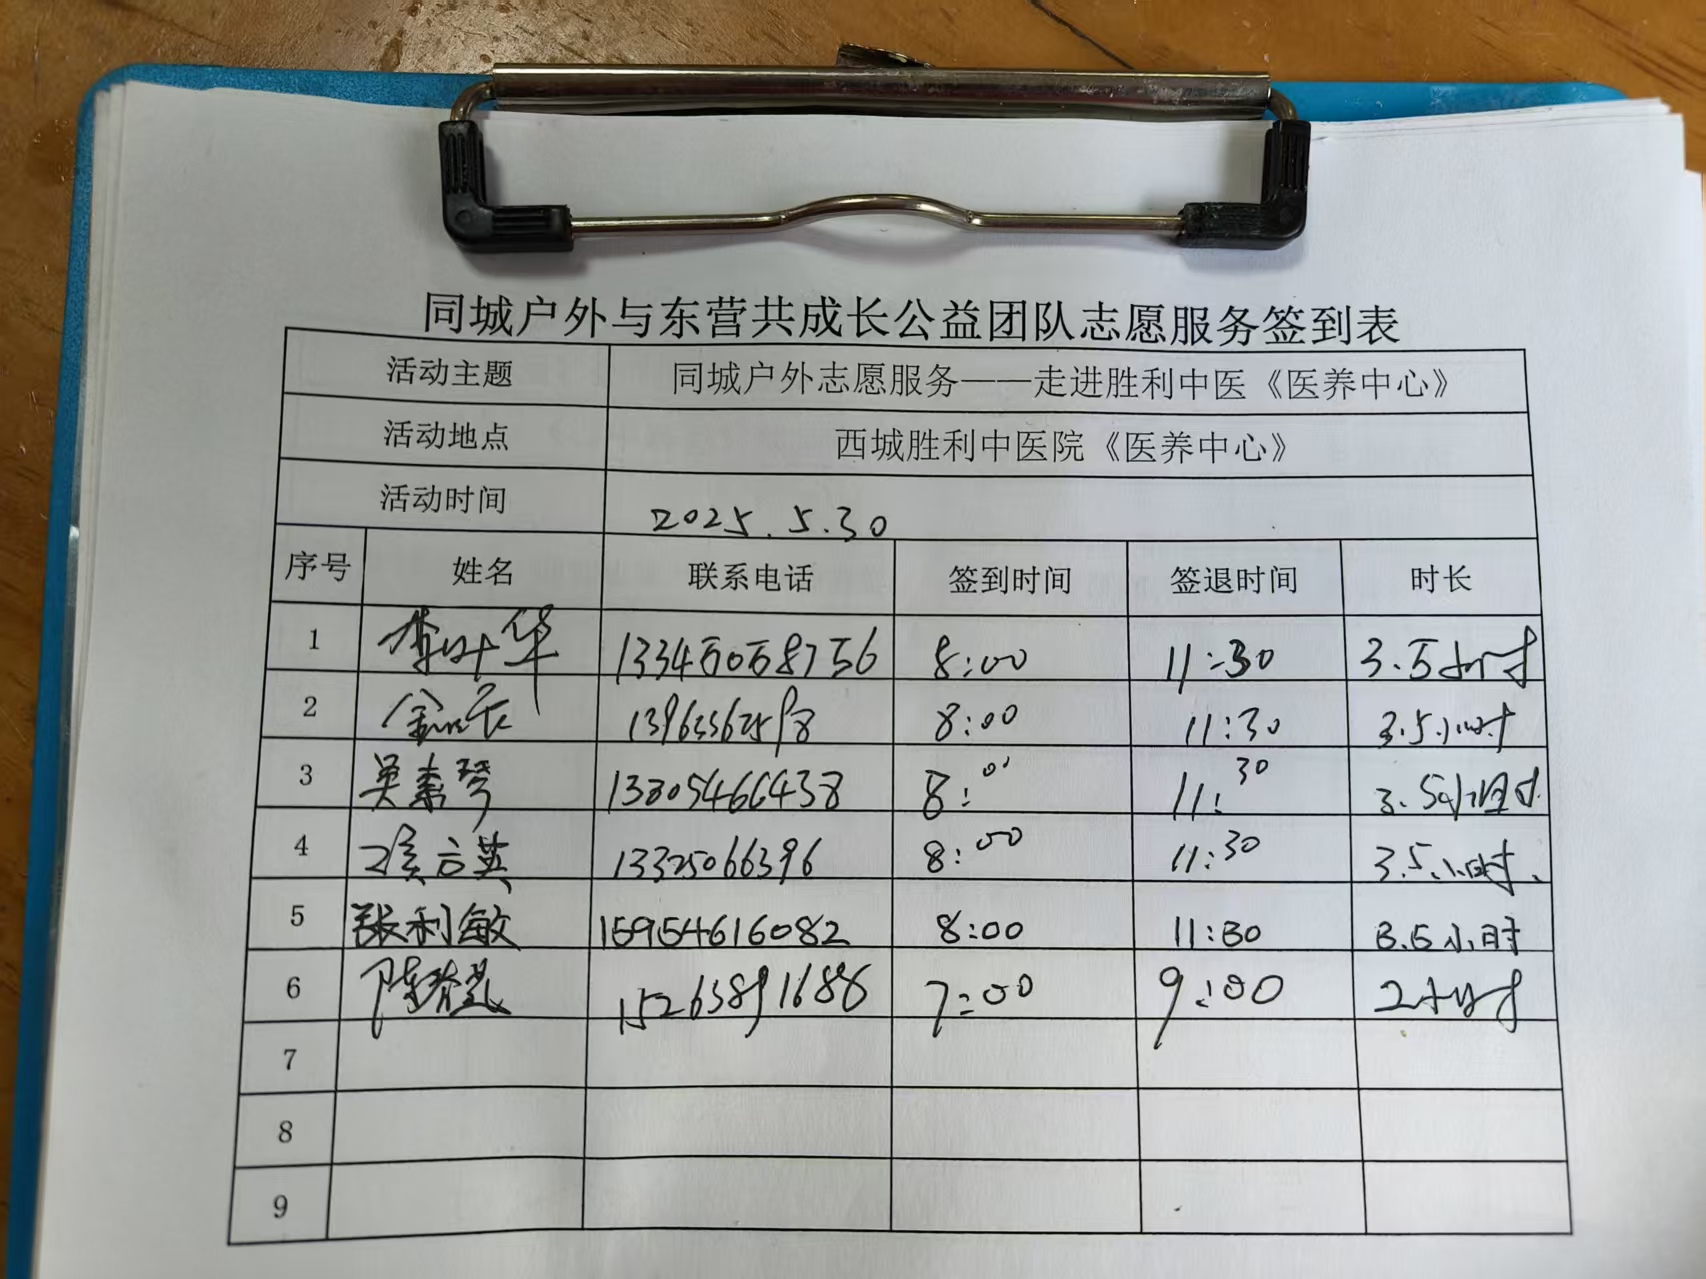 同城户外与东营共成长公益团队志愿服务签到表
活动主题 同城户外志愿服务——走进胜利中医《医养中心》
活动地点 西城胜利中医院《医养中心》
活动时间 2025.5.30
序号 姓名 联系电话 签到时间 签退时间 时长
1 李叶华 13345058756 8:00 11:30 3.5小时
2 8:00 11:30 3.5小时
3 吴素琴 13805466438 8:00 11:30 3.5小时
4 13325066396 8:00 11:30 3.5小时.
5 张利敏 15954616082 8:00 11:30 3.5小时
6 15263891686 7:00 9:00 2小时
7
8
9